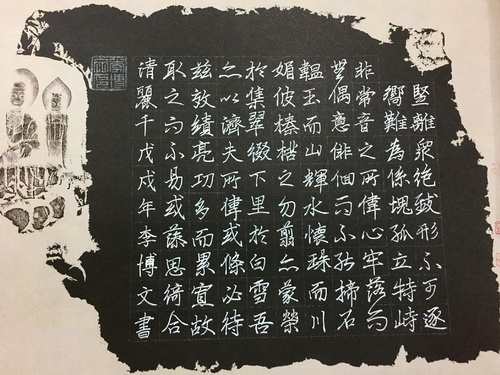 豎離眾絕致形不可逐
嚮難為係塊孤立特峙
非常音之所偉心牢落而
無偶意徘徊而不能揥石
韞玉而山輝水懷珠而川
媚彼榛楛之勿翦亦蒙榮
於集翠綴下里於白雪吾
亦以濟夫所偉或條必待
茲效績亮功多而累寡故
取之而不易或藻思綺合
清麗千戊戌年李博文書